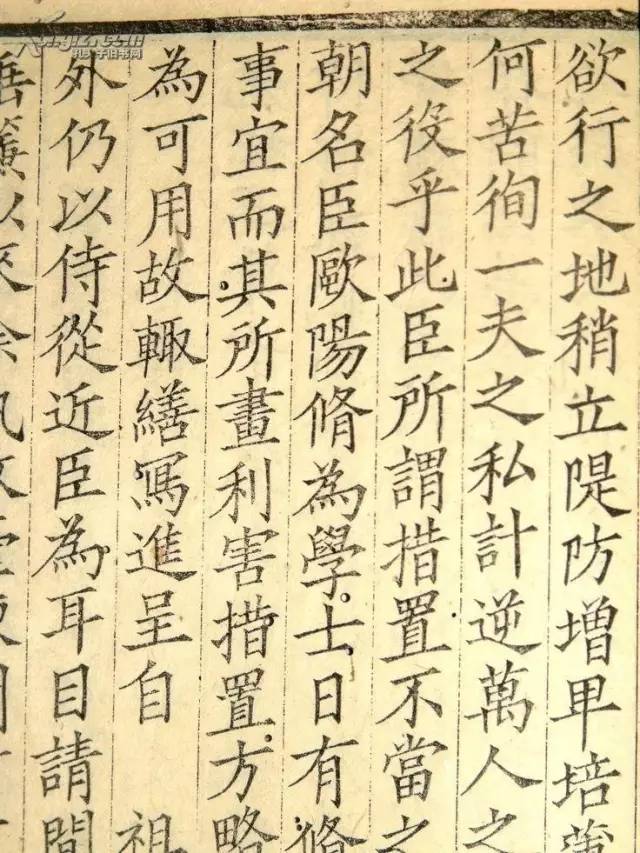 欲行之地稍立隄防增甲培薄
何苦徇一夫之私計逆萬人之
之役乎此臣所謂措置不當之
朝名臣歐陽脩為學士日有脩
事宜而其所畫利害措置方略
為可用故輙繕寫進呈自 祖
外仍以侍從近臣為耳目請間